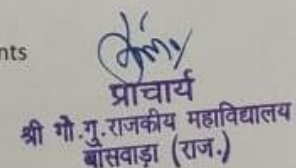 nts
प्राचार्य
श्री गो.गु.राजकीय महाविद्यालय
बांसवाड़ा (राज.)